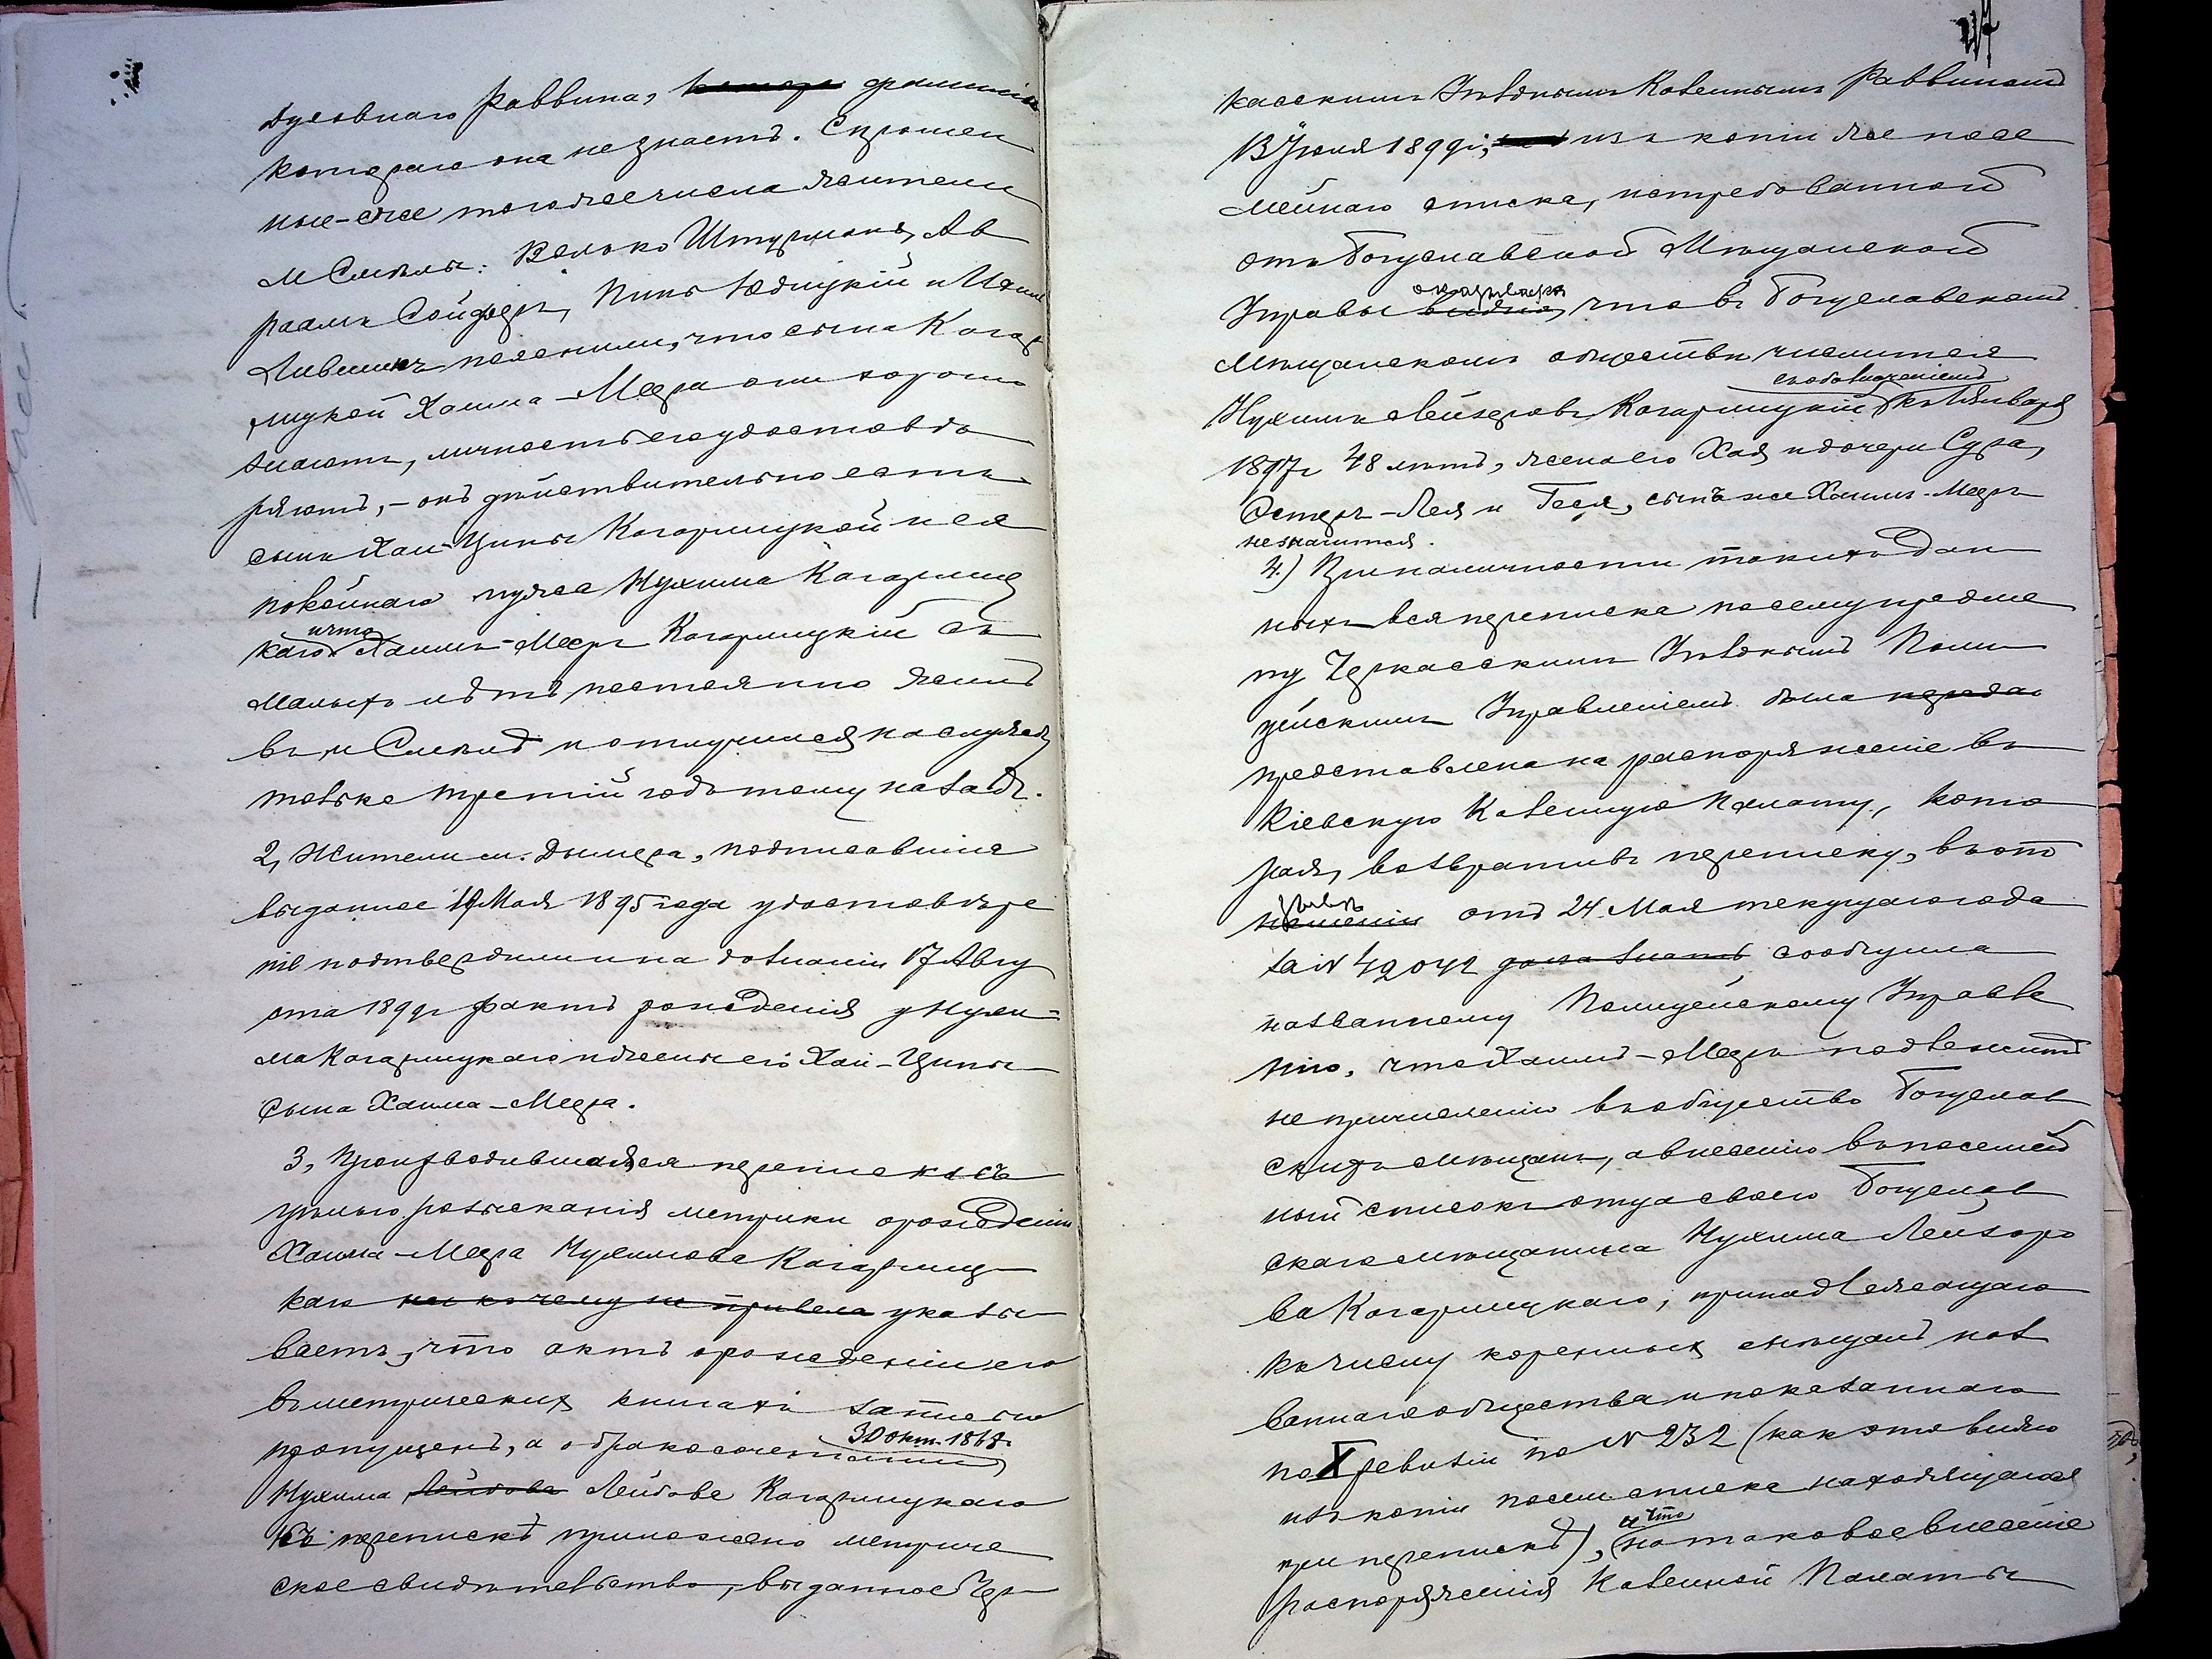 Духовнаго Раввина, фамилiи
котораго она не знаетъ. Спрошен
ные-же того же числа жители
м Смѣлы: Велько Штурманъ, Ав
раамъ Сойферъ, Пинь Юдицкій и
Лившицъ пояснили, что сына Кагар
лицкой Хаима-Меера они хорошо
знаютъ, личность его удостовѣ
ряютъ, - онъ дѣйствительно есть
сынъ Хаи-Ципы Кагарлицкой и ея
покойнаго мужа Нухима Кагарлиц
каго и что Хаимъ-Мееръ Кагарлицкій съ
малыхъ лѣтъ постоянно жилъ
въ м Смѣлѣ и отлучился
третій годъ тому назадъ.
2, Жители м. Дымера, подписавшіе
выданное 19 Мая 1895 года удостовѣре
ніе подтвердили на дознаніи 17 Авгу
ста 1899г фактъ рожденія у Нухи=
ма Кагарлицкаго и жены его Хаи-Ципы
сына Хаима-Меера.
3, Производившаяся переписка съ
цѣлью розысканія метрики о рожденіи
Хаима-Меера Нухимова Кагарлиц
каго ни къ чему не привела указы
ваетъ, что актъ о рожденіи его
въ метрическихъ книгахъ записью
пропущенъ, а о бракосочетаніи 30 окт. 1868г
Нухима Лейбова Лейбова Кагарлицкаго
къ перепискѣ приложено метриче
ское свидѣтельство, выданное Чер
47
касскимъ Уѣзднымъ Казеннымъ Раввиномъ
13 Іюня 1899г; изъ копіи же посе
мейнаго списка, истребованной
отъ Богуславской Мѣщанской
Управы видно, оказывается что въ Богуславскомъ
Мѣщанскомъ обществѣ числится
Нухимъ Лейзеровъ Кагарлицкій, къ 1 Января
1897г 48 лѣтъ, жена его Хая и дочери Сура,
Эстеръ-Лея и Геся, сынъ же Хаимъ-Мееръ
не значится.
4.) При наличности такихъ дан
ныхъ вся переписка по сему предме
ту Черкасскимъ Уѣзднымъ Поли
цейскимъ Управленіемъ была передана
представлена на распоряженіе въ
Кіевскую Казенную Палату, кото
рая, возвративъ переписку, въ отно
шеніи отъ 24 Мая текущаго года
за N 42042 дала знать сообщила
названному Полицейскому Управле
нію, что Хаимъ-Мееръ подлежитъ
не причисленію въ общество Богуслав
скихъ мѣщанъ, а внесенію въ посемей
ный списокъ отца своего Богуслав
скаго мѣщанина Нухима Лейзоро
ва Кагарлицкаго, принадлежащаго
къ числу коренныхъ мѣщанъ наз
ваннаго общества и показаннаго
по X ревизіи по N 232 (какъ это видно
изъ копіи посем списка находящагося
при перепискѣ), и что на таковое внесеніе
распоряженія Казенной Палаты